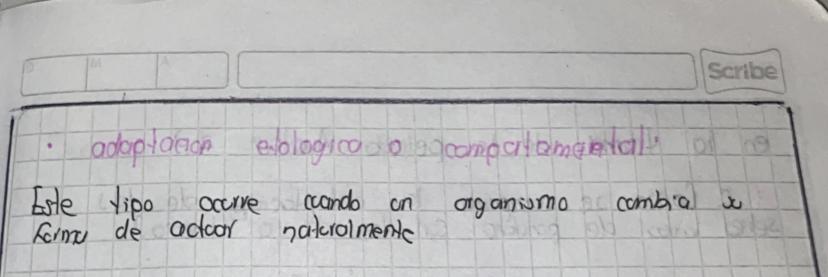 D M A
Scribe
• adaptación etologica o comportamental:
Este tipo ocurre cuando un organismo cambia su
forma de actuar naturalmente